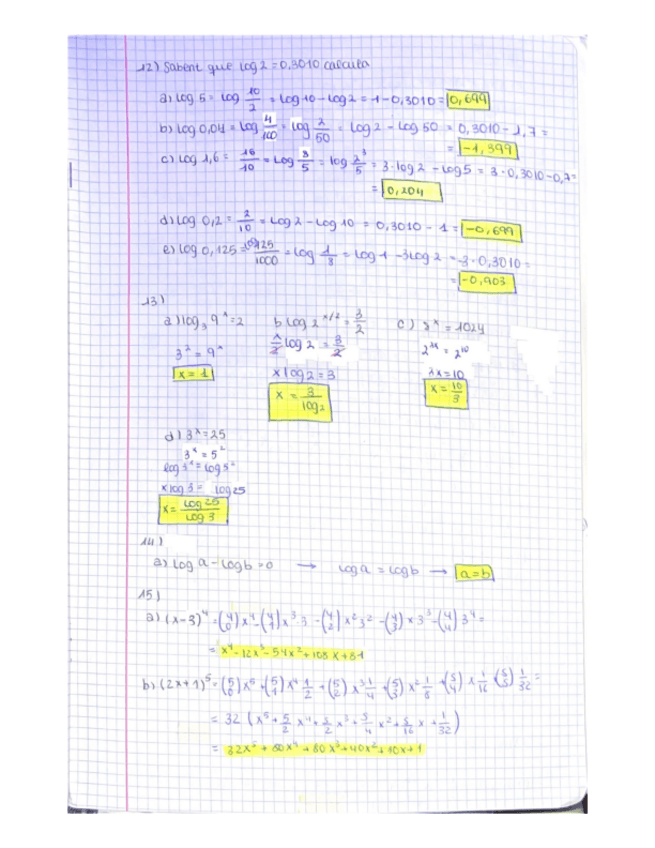 12) Sabent que log 2 = 0,3010 calcula
a) log 5 = log 10/2 = log 10 - log 2 = 1 - 0,3010 = 0,699
b) log 0,04 = log 4/100 = log 2/50 = log 2 - log 50 = 0,3010 - 1,7 =
= -1,399
c) log 1,6 = 16/10 = log 8/5 = log 2³/5 = 3·log 2 - log 5 = 3·0,3010 - 0,7 =
= 0,204
d) log 0,2 = 2/10 = log 2 - log 10 = 0,3010 - 1 = -0,699
e) log 0,125 = 125/1000 = log 1/8 = log 1 - 3log 2 = -3·0,3010 =
= -0,903
13)
a) log₃ 9ˣ = 2
3² = 9ˣ
x = 1
b log 2^x/2 = 3/2
x/2 log 2 = 3/2
x log 2 = 3
x = 3/log 2
c) 8ˣ = 1024
= 2¹⁰
x = 10/3
d) 3ˣ = 25
3ˣ = 5²
log 3ˣ = log 5²
x log 3 = log 25
x = log 25/log 3
14)
a) log a - log b = 0 → log a = log b → a = b
15)
a) (x-3)⁴ = (4 0) x⁴ - (4 1) x³·3 - (4 2) x² 3² - (4 3) x 3³ - (4 4) 3⁴ =
= x⁴ - 12x³ - 54x² + 108x + 81
b) (2x+1)⁵ = (5 0) x⁵ + (5 1) x⁴ 1/2 + (5 2) x³ 1/4 + (5 3) x² 1/8 + (5 4) x 1/16 (5 5) 1/32 =
= 32 (x⁵ + 5/2 x⁴ + 5/2 x³ + 5/4 x² + 5/16 x + 1/32)
= 32x⁵ + 80x⁴ + 80x³ + 40x² + 10x + 1